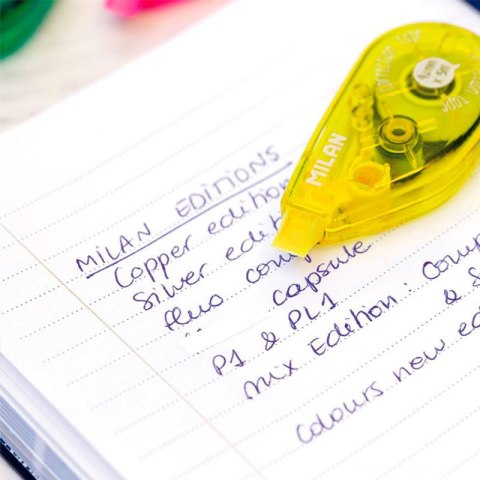 MILAN EDITIONS
Copper edition
Silver edit
fluo comp
" capsule
P1 & PL1
Mix Edition: Comp
& S
Colours new ed
MILAN
correction tape
5 mm x 5 m